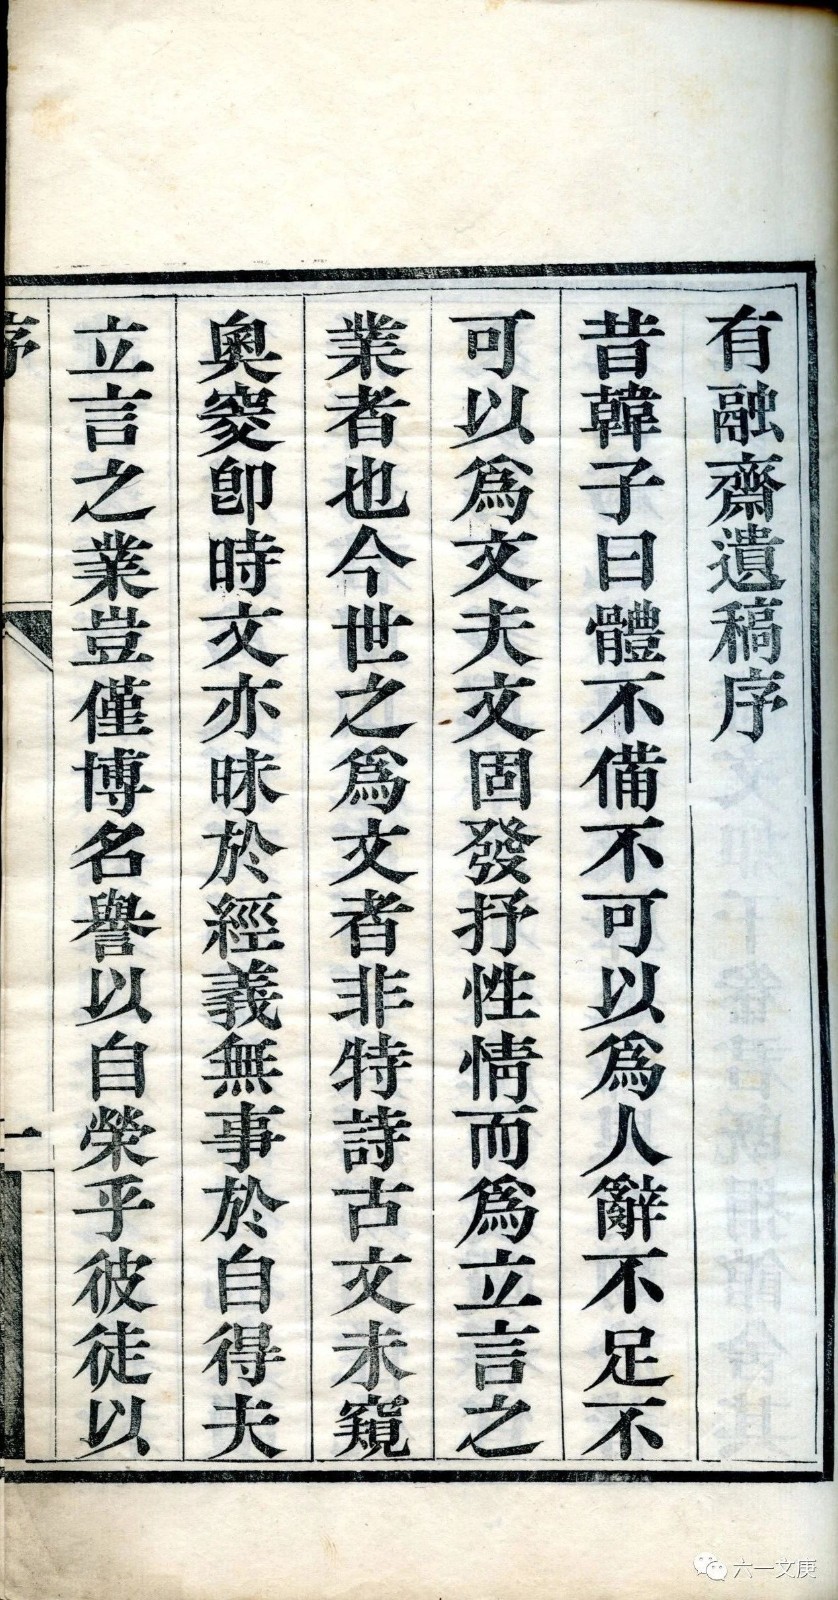 有融齋遺稿序
昔韓子曰體不備不可以爲人辭不足不
可以爲文夫文固發抒性情而爲立言之
業者也今世之爲文者非特詩古文未窺
奧窔卽時文亦昧於經義無事於自得夫
立言之業豈僅博名譽以自榮乎彼徒以
序
一
六一文庚